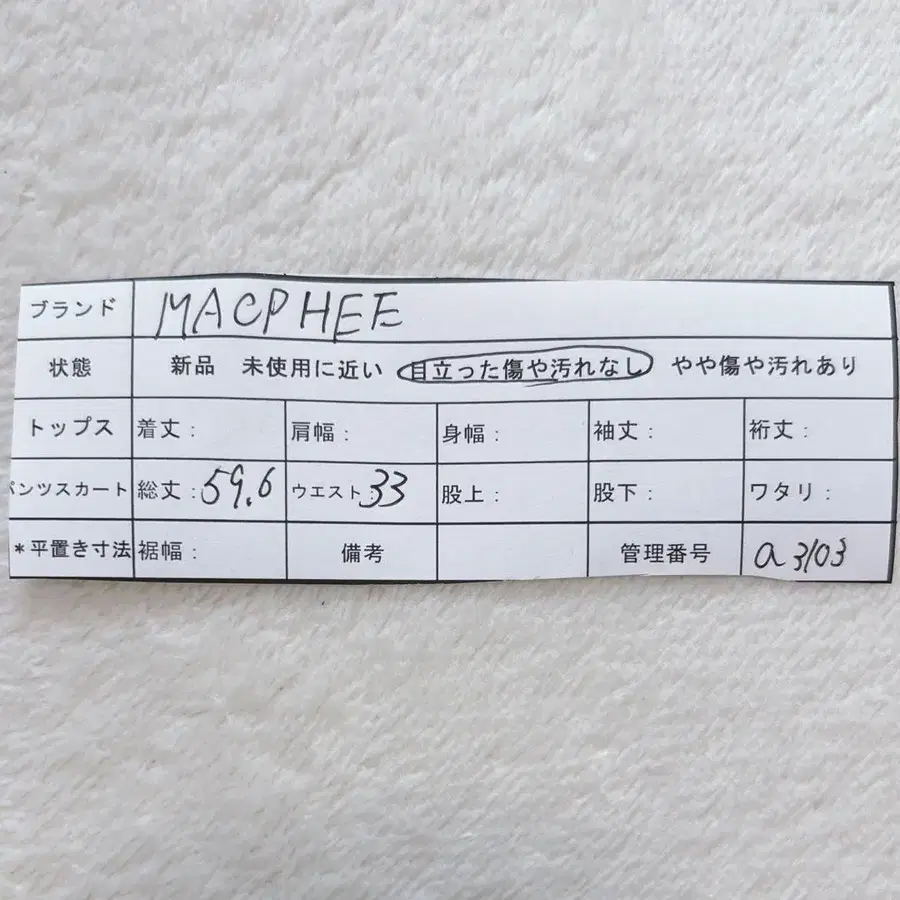 ブランド MACPHEE
状態 新品 未使用に近い 目立った傷や汚れなし やや傷や汚れあり
トップス 着丈: 肩幅: 身幅: 袖丈: 裄丈:
パンツスカート 総丈:59.6 ウエスト:33 股上: 股下: ワタリ:
*平置き寸法 裾幅: 備考 管理番号 a3103